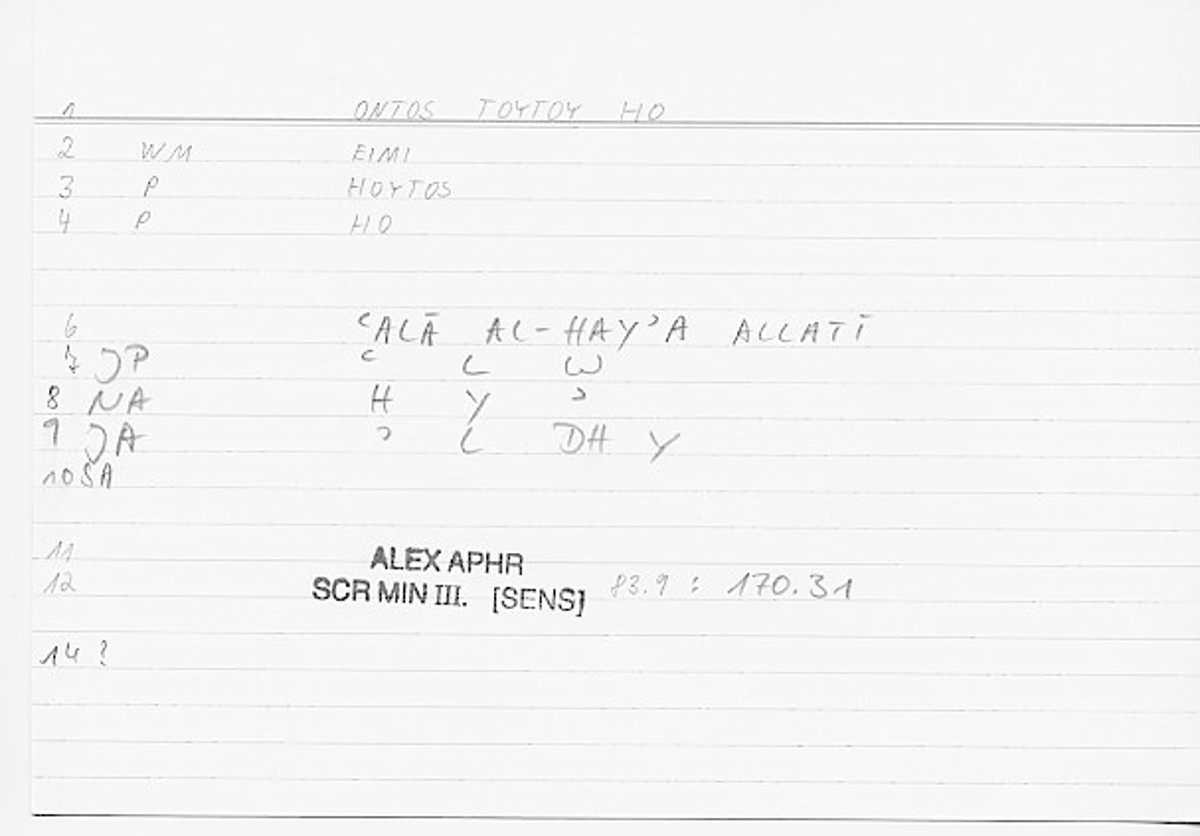 1 ONTOS TOYTOY HO
2 WM EIMI
3 P HOYTOS
4 P HO
6 ʿALĀ AL-HAYʾA ALLATĪ
7 JP ʿ L W
8 NA H Y ʾ
9 JA ʾ L DH Y
10 SA
11 ALEX APHR
12 SCR MIN III. [SENS] 83.9 : 170.31
14 ?